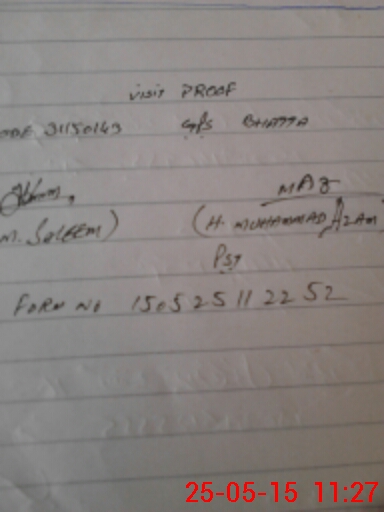 visit PROOF
ODE 31150143 GPS BHATTA
MAZ
M. SALEEM) (H. MUHAMMAD AZAM
PST
FORM NO 150525112252
25-05-15 11:27